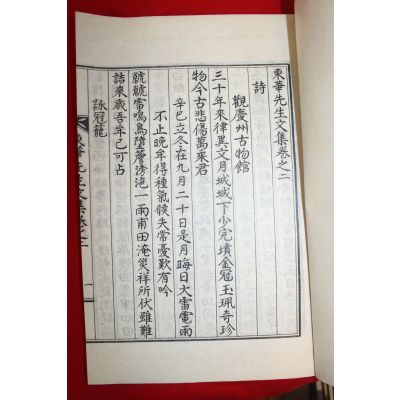 東華先生文集卷之二
詩
觀慶州古物館
三十年來律異文月城城下少完墳金冠玉珮奇珍
物今古悲傷萬乘君
辛巳立冬在九月二十日是月晦日大雷電雨
不止晚牟得種氣候失常憂歎有吟
虩虩雷鳴鳥墮薨滂沱一雨甫田淹災祥所伏雖難
詰來歲吾牟已可占
詠冠籠
東華先生文集卷之二
一